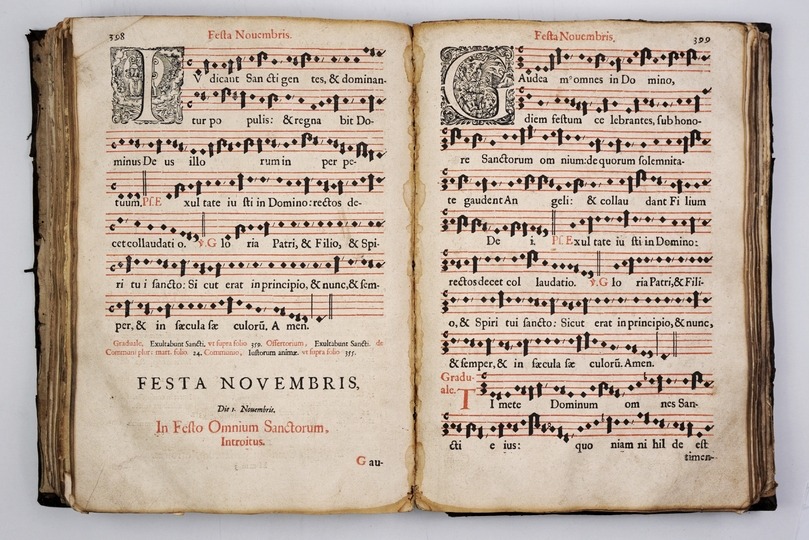 398
Festa Nouembris.
IV dicant San cti gen tes, & dominan-
tur po pulis: & regna bit Do-
minus De us illo rum in per pe-
tuum. Pſ. E xul tate iu ſti in Domino: rectos de-
cet collaudati o. ℣. G lo ria Patri, & Filio, & Spi-
ri tu i ſancto: Si cut erat in principio, & nunc, & ſem-
per, & in ſæcula ſæ culorũ. A men.
Graduale. Exultabunt Sancti, vt ſupra folio 359. Offertorium, Exultabunt Sancti. de
Communi plur: mart. folio 24. Communio, Iuſtorum animæ. vt ſupra folio 355.
FESTA NOVEMBRIS,
Die 1. Nouembris.
In Feſto Omnium Sanctorum,
Introitus.
G au-
Festa Nouembris.
399
GAudea m⁹ omnes in Do mino,
diem feſtum ce lebrantes, ſub hono-
re Sanctorum om nium: de quorum ſolemnita-
te gaudent An geli: & collau dant Fi lium
De i. Pſ. Exul tate iu ſti in Domino:
rectos decet col laudatio. ℣. G lo ria Patri, & Fili-
o, & Spiri tui ſancto: Sicut erat in principio, & nunc,
& ſemper, & in ſæcula ſæ culorũ. Amen.
Gradu-
ale.
T Imete Dominum om nes San-
cti e ius: quo niam ni hil de eſt
timen-